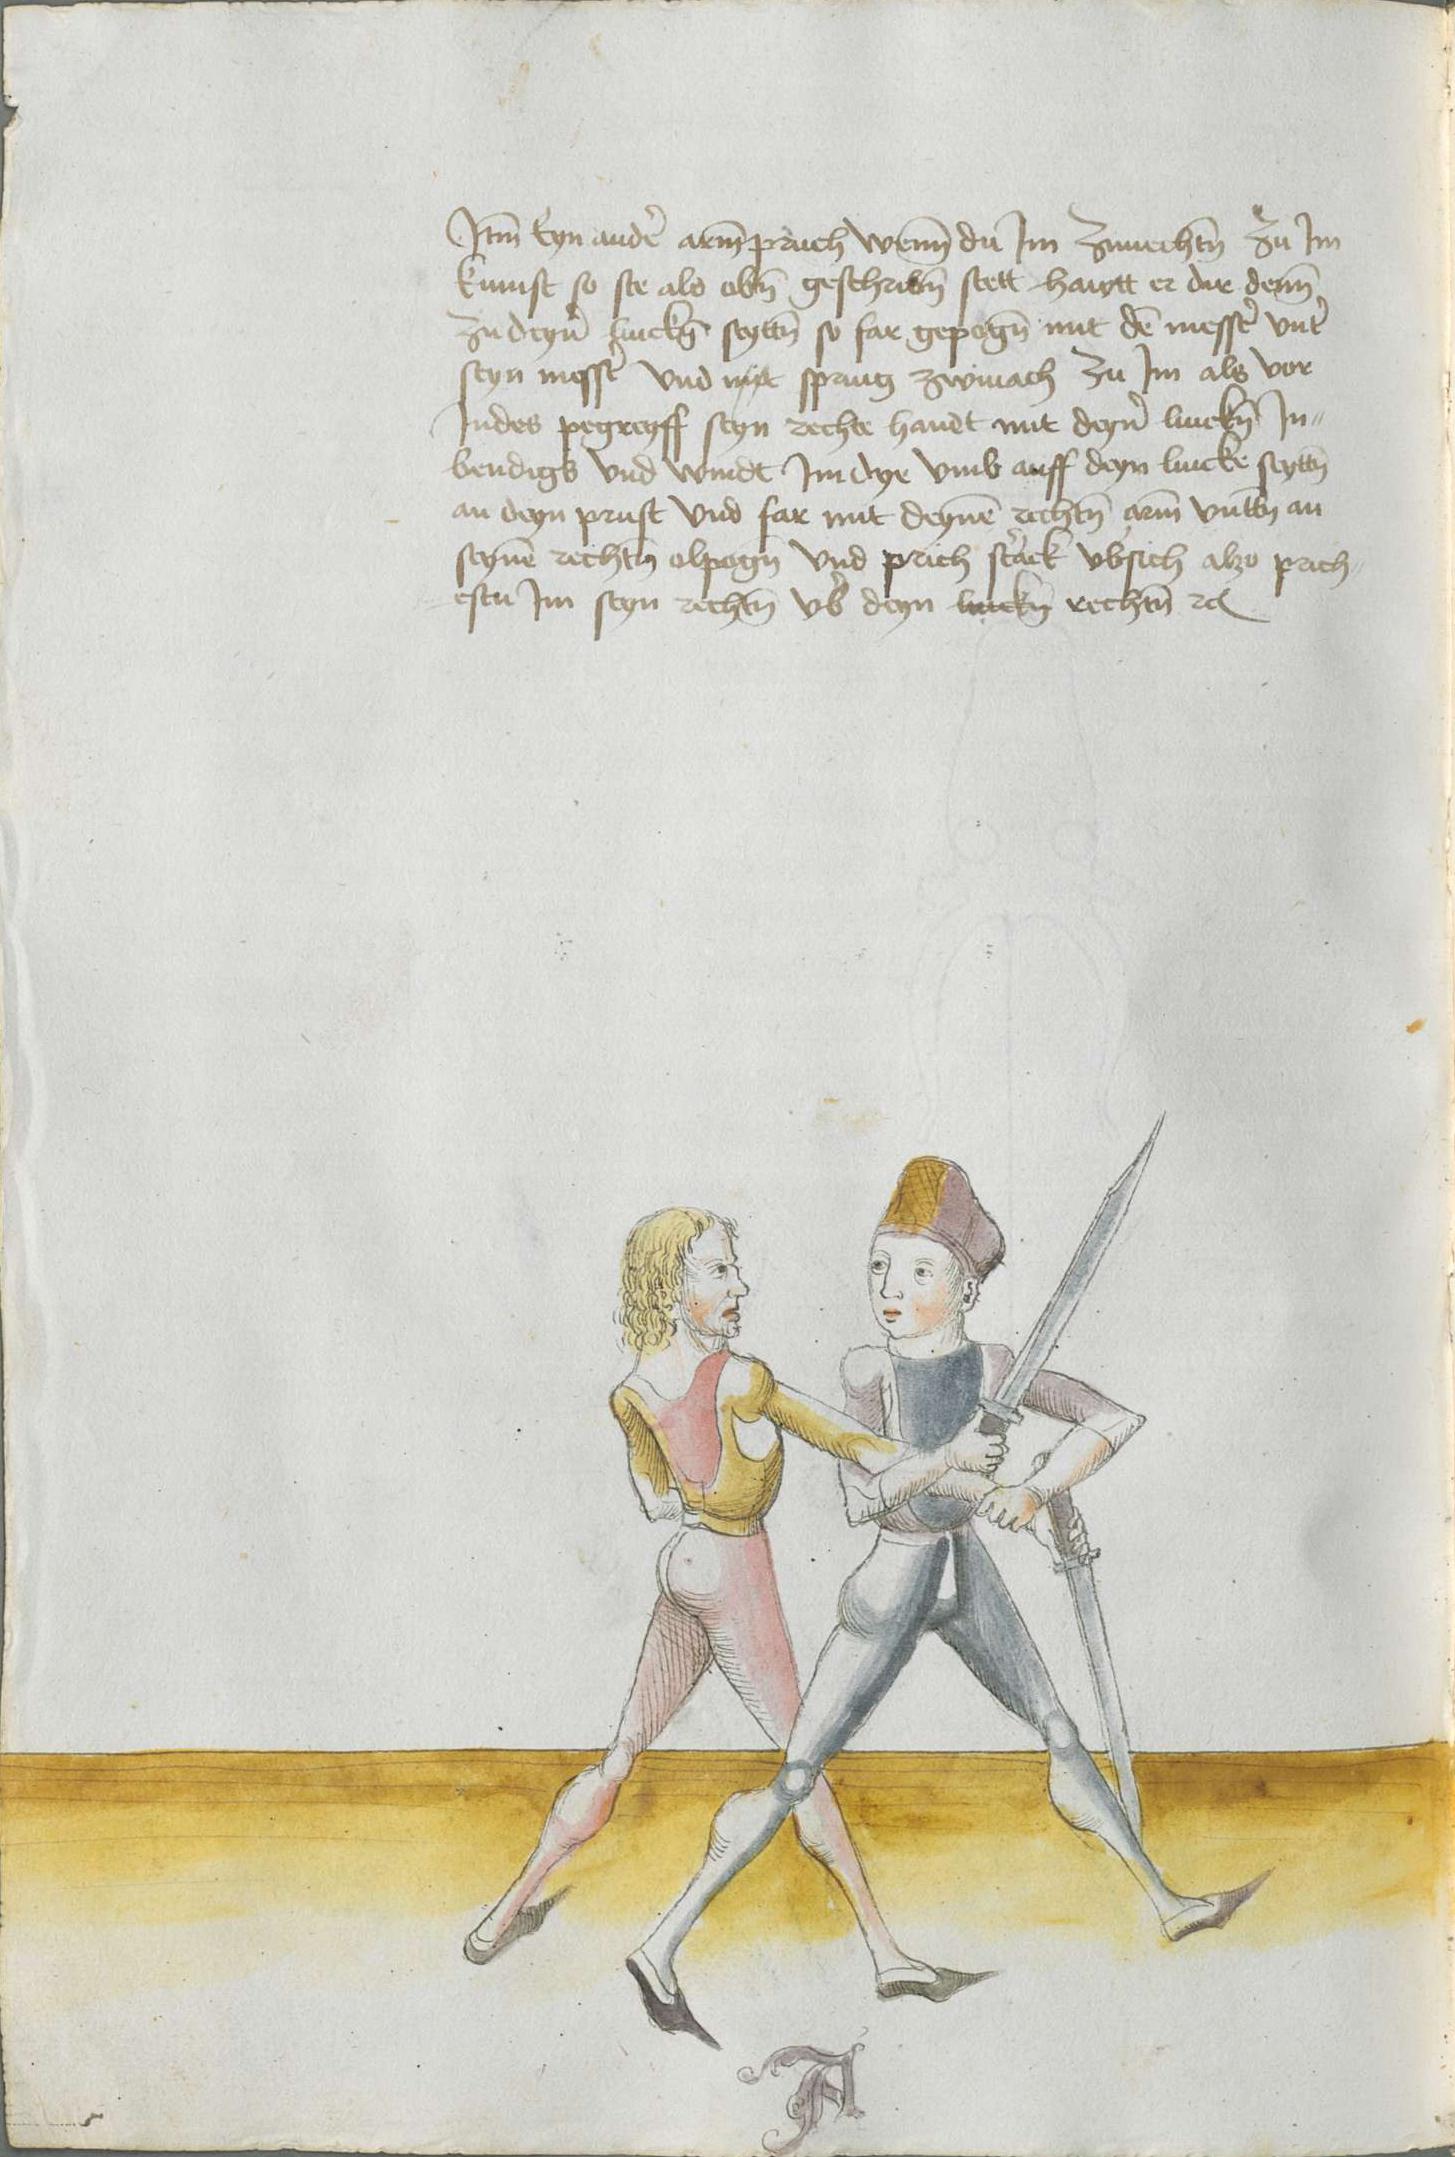 Itm̄ Eyn ander̄ arm̄pruch wenn̄ du Im Zuuechtn̄ Zu Im
kumst so ste als obn̄ geschribn̄ stett hawtt er dir denn̄
zu deyn̄ linckn̄ seyttn̄ so far gepogn̄ mit dē messer̄ vnter̄
seyn messer̄ vnd spring zwiuach Zu Im als vor
Indes pegreyff seyn rechte handt mit deyn̄ linckn̄ In-
bendigs vnd windt Im dye vmb auff deyn lincke seyttn̄
an deyn prust vnd far mit deynē rechtn̄ arm̄ vnttn̄ an
seynē rechtn̄ elpogn̄ vnd prich starck vbsich also prich-
estu Im seyn rechtn̄ vb̄ deyn linckn̄ rechtn̄ rc
A